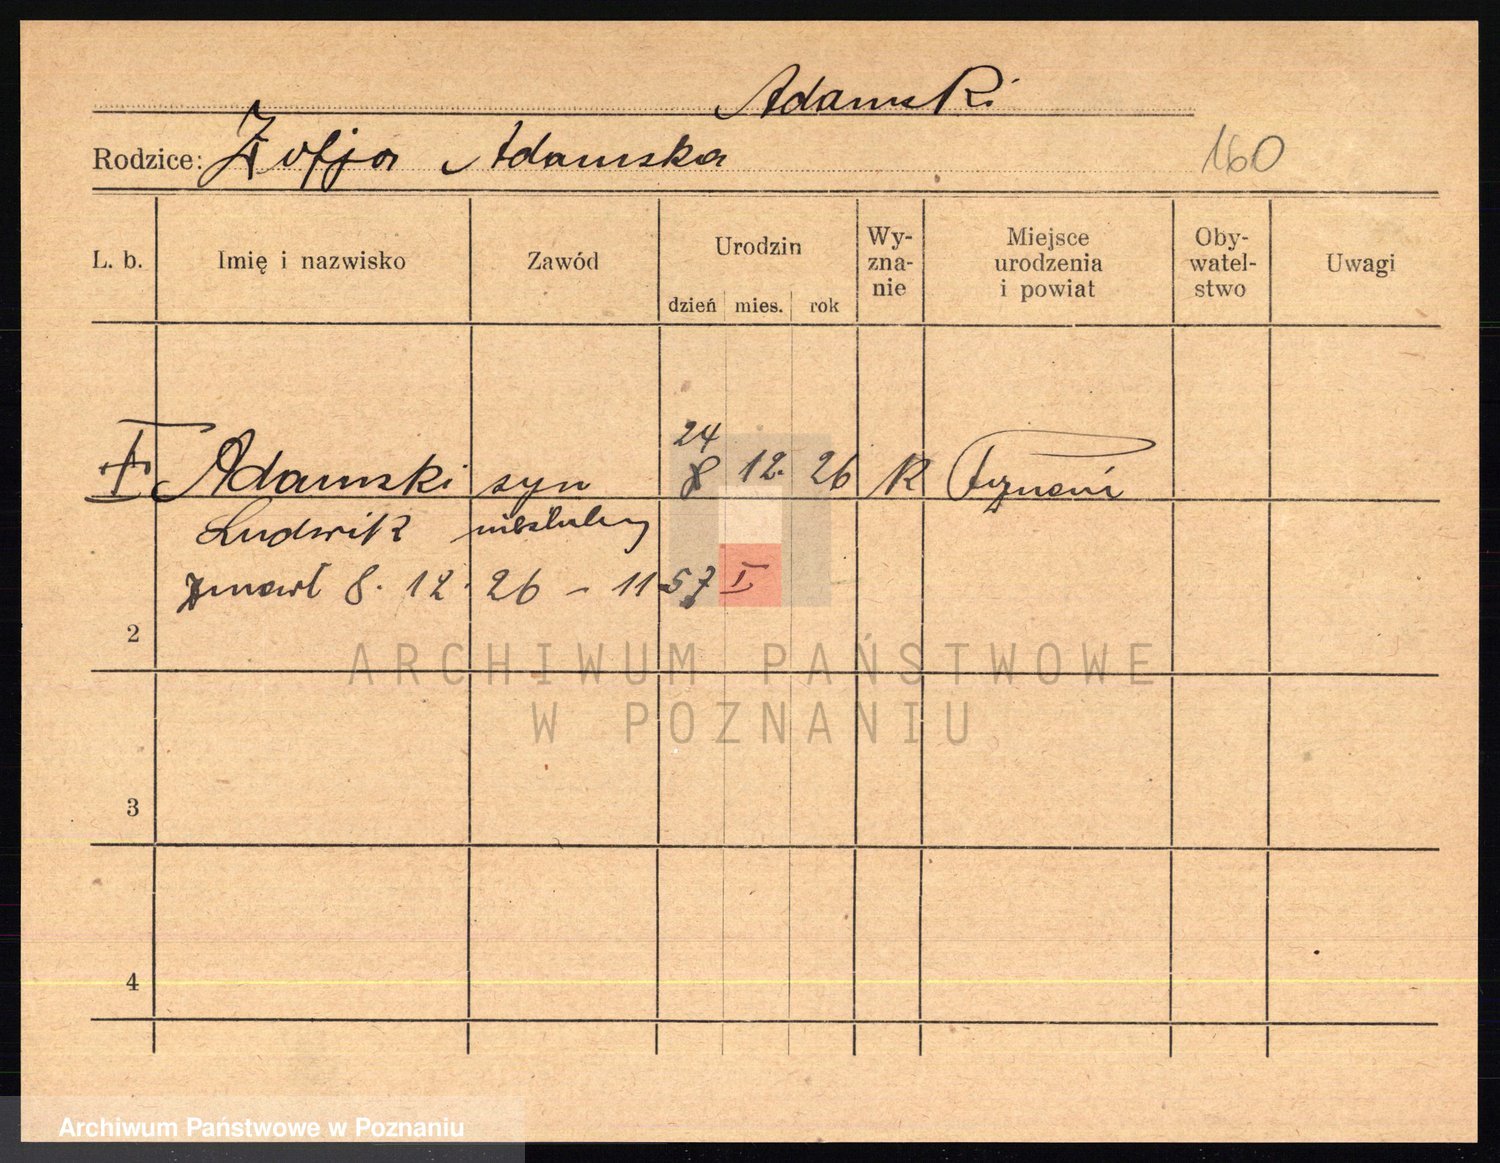 Adamski
Rodzice: Zofja Adamska
160
L. b. Imię i nazwisko Zawód Urodzin Wy-zna-nie Miejsce urodzenia i powiat Oby-watel-stwo Uwagi
dzień mies. rok
24
Adamski syn 8 12. 26 R Poznań
Ludwik nieślubny
zmarł 8. 12. 26 - 11 57 I
2
ARCHIWUM PAŃSTWOWE
W POZNANIU
3
4
Archiwum Państwowe w Poznaniu